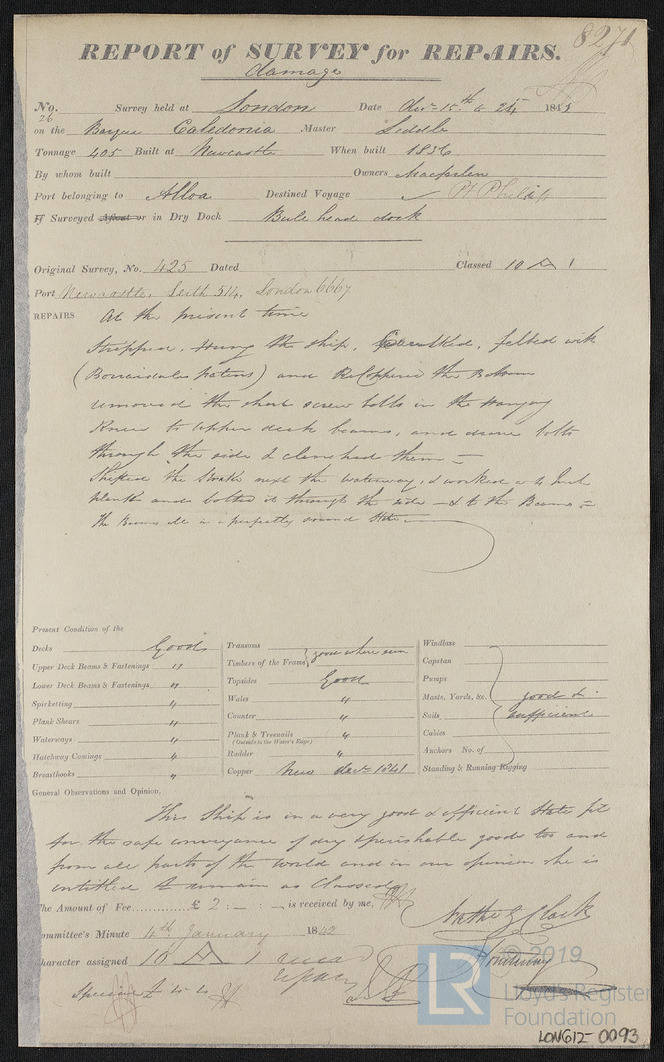 8271
REPORT of SURVEY for REPAIRS.
damage
No. 26 Survey held at London Date Decr 15th to 24 1841
on the Barque Caledonia Master Liddle
Tonnage 405 Built at Newcastle When built 1836
By whom built Owners Macfarlen
Port belonging to Alloa Destined Voyage Pt Philip
If Surveyed Afloat or in Dry Dock Bull head dock
Original Survey, No. 425 Dated Classed 10 A 1
Port Newcastle, Leith 514, London 6667
REPAIRS At the present time
Stripped, the ship, Caulked, felted with
(Borradailes patent) and ReCoppered the Bottom
removed the short screw bolts in the Hanging
Knees to Upper deck beams, and drove bolts
through the side & clenched them =
Shifted the Strake next the waterway, & worked a
plank and bolted it through the side & to the Beams =
the Beams all in a perfectly sound State
Present Condition of the
Decks Good
Upper Deck Beams & Fastenings "
Lower Deck Beams & Fastenings "
Spirketting "
Plank Shears "
Waterways "
Hatchway Comings "
Breasthooks "
Transoms
Timbers of the Frame } good where seen
Topsides Good
Wales "
Counter "
Plank & Treenails "
(Outside to the Water's Edge)
Rudder "
Copper New Decr 1841
Windlass
Capstan
Pumps
Masts, Yards, &c. good &
Sails sufficient
Cables
Anchors No. of
Standing & Running Rigging
General Observations and Opinion.
This Ship is in a very good & efficient State fit
for the safe conveyance of dry & perishable goods to and
from all parts of the world and in our opinion she is
entitled to remain as Classed
The Amount of Fee £ 2 : - : - is received by me,
Nathl G Clark
Committee's Minute 4th January 1842
Character assigned 10 A 1
© 2019
Lloyd's Register
Foundation
LR
LON612-0093